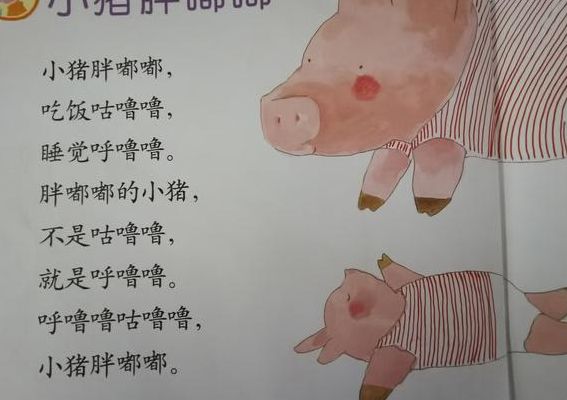 小猪胖嘟嘟
小猪胖嘟嘟，
吃饭咕噜噜，
睡觉呼噜噜。
胖嘟嘟的小猪，
不是咕噜噜，
就是呼噜噜。
呼噜噜咕噜噜，
小猪胖嘟嘟。